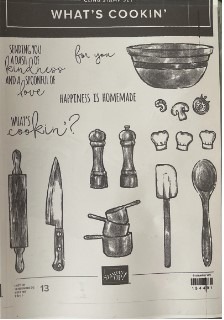 CLING STAMP SET
WHAT'S COOKIN'
SENDING YOU
A DASH OF
kindness
AND A SPOONFUL OF
love
for you
HAPPINESS IS HOMEMADE
WHAT'S
cookin'?
STAMPIN'
UP!
13